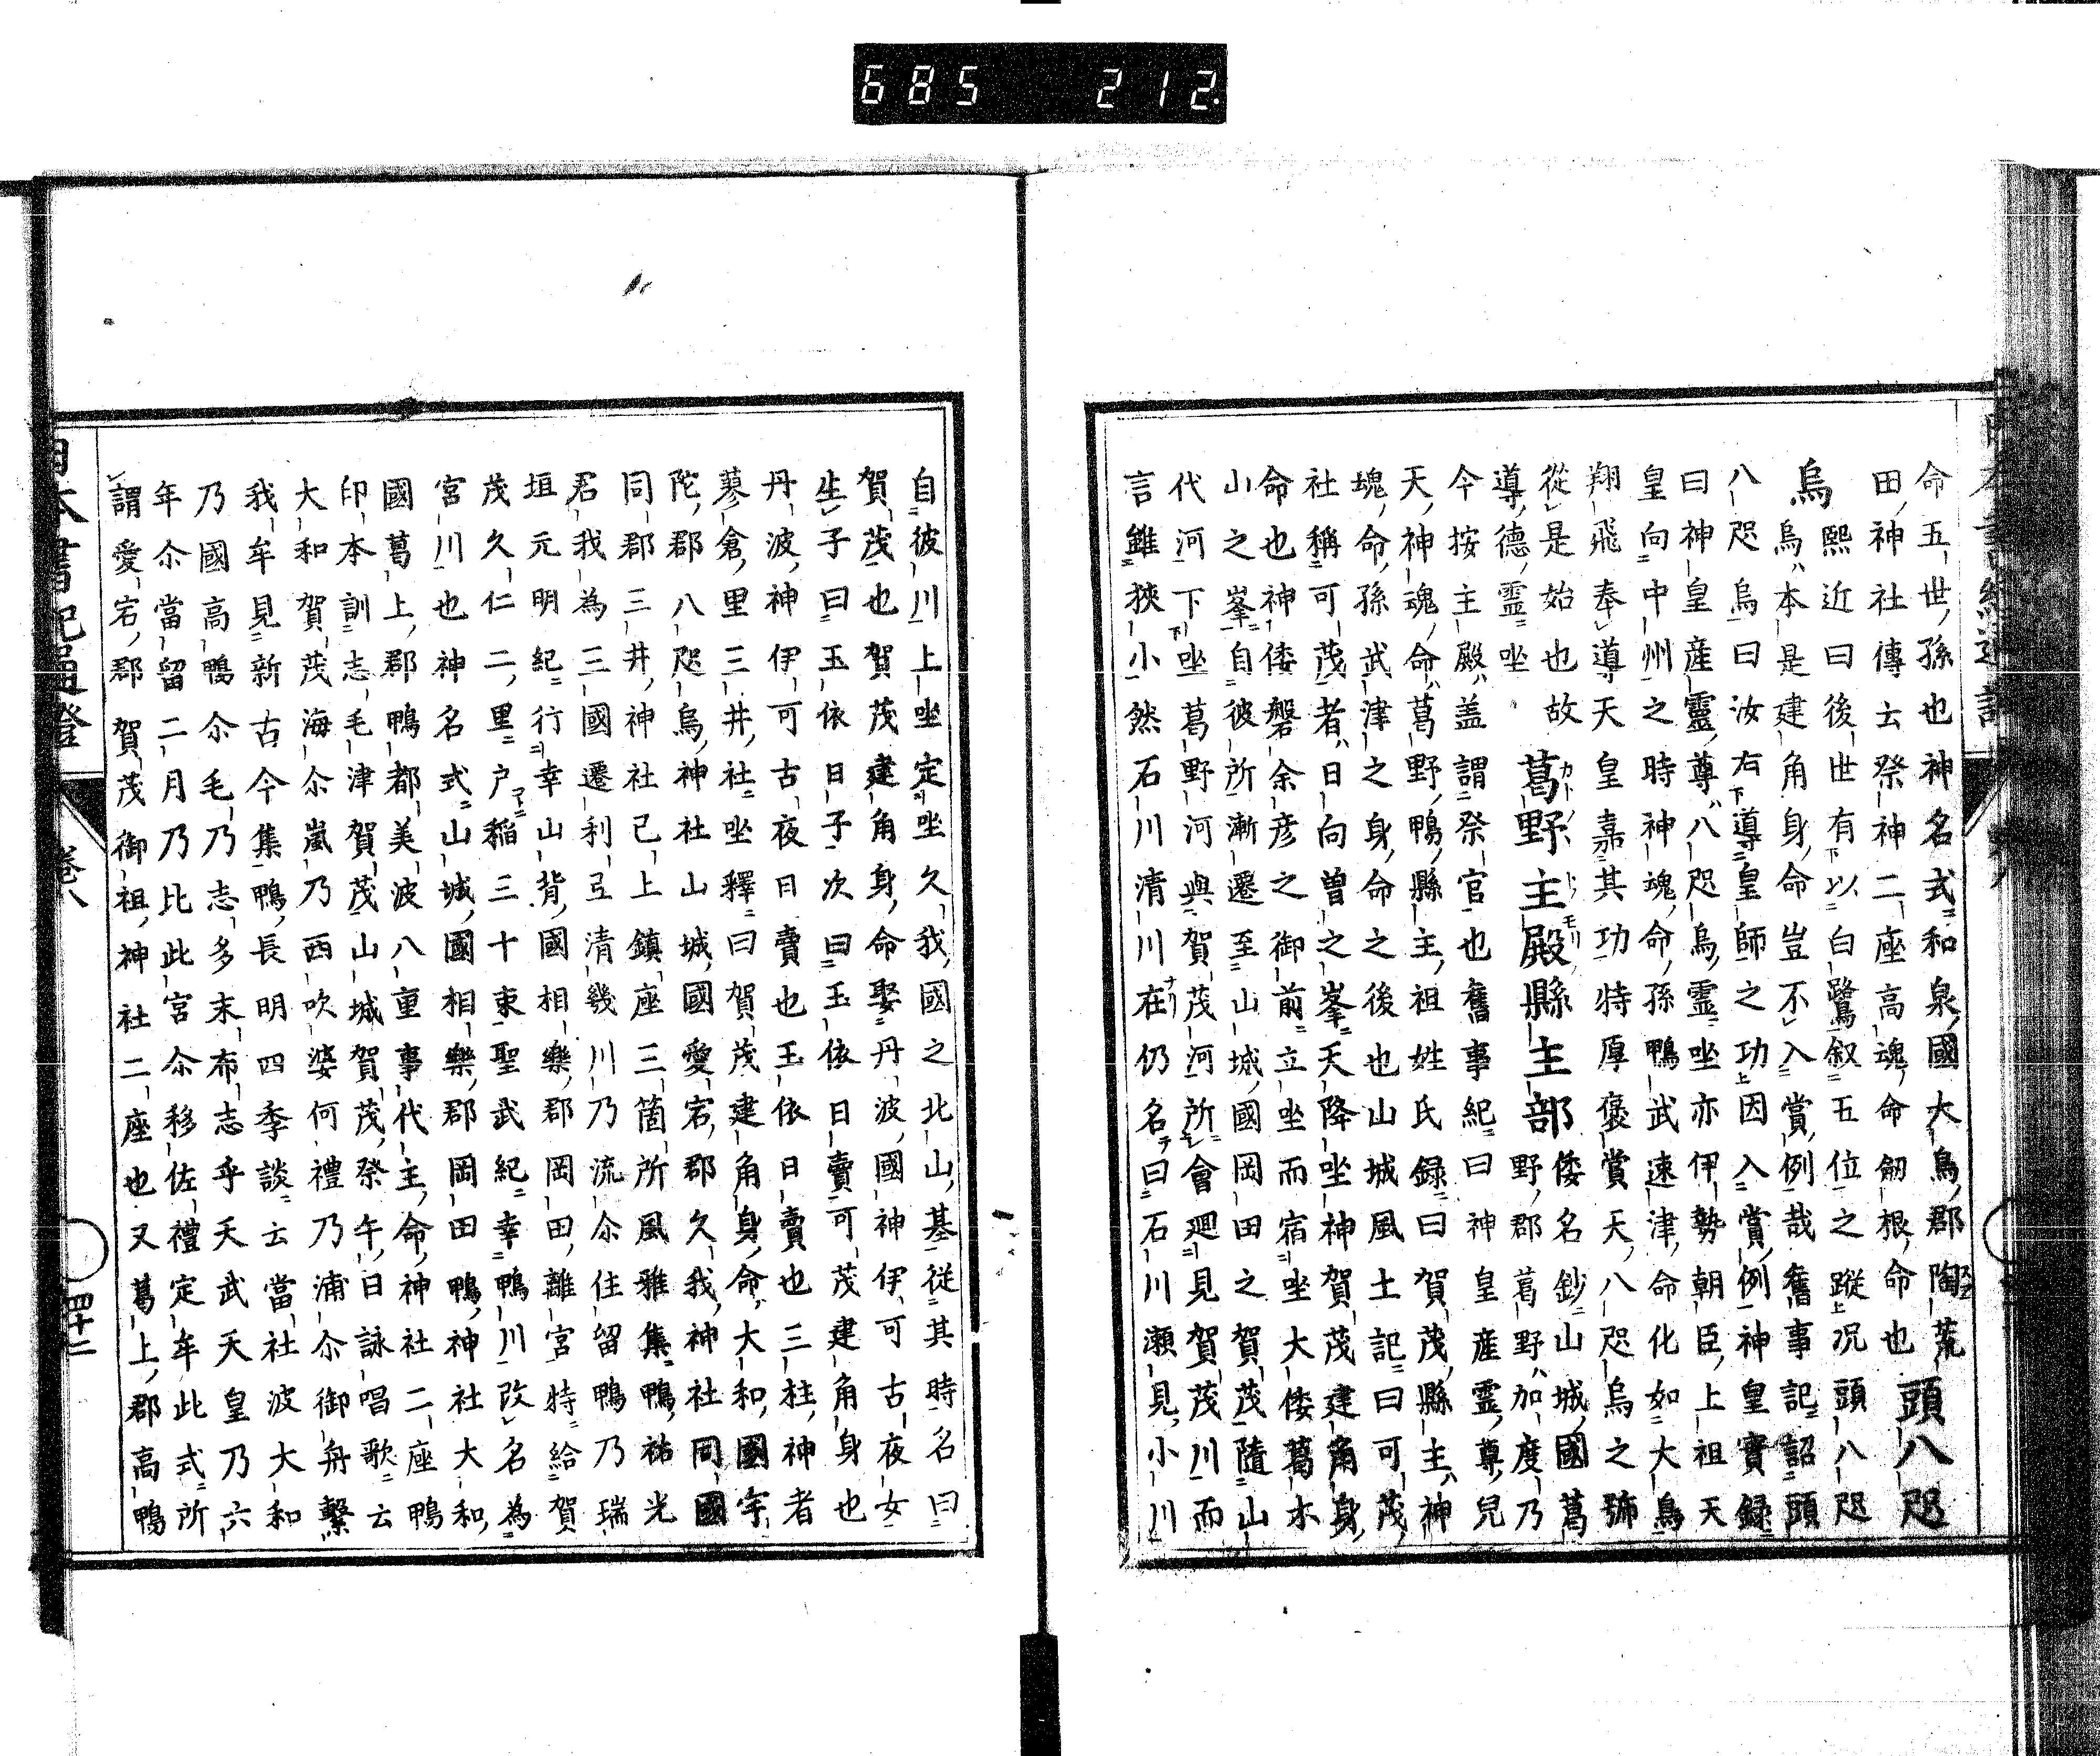 685 212.
命五世孫也神名式和泉國大鳥郡陶荒
田神社傳云祭神二座高魂命劔根命也 頭八咫
烏 熙近曰後世有以白鷺叙五位之蹤況頭八咫
烏本是建角身命豈不入賞例哉舊事記詔頭
八咫烏曰汝右導皇師之功因入賞例神皇實錄
曰神皇産靈尊八咫烏霊坐亦伊勢朝臣上祖天
皇向中州之時神魂命孫鴨武速津命化如大烏
翔飛奉導天皇嘉其功特厚褒賞天八咫烏之號
從是始也故 葛野主殿縣主部 倭名鈔山城國葛
導德霊坐 野郡葛野加度乃
今按主殿盖謂祭官也舊事紀曰神皇産霊尊兒
天神魂命葛野鴨縣主祖姓氏録曰賀茂縣主神
魂命孫武津之身命之後也山城風土記曰可茂
社稱可茂者日向曽之峯天降坐神賀茂建角身
命也神倭磐余彦之御前立坐而宿坐大倭葛木
山之峯自彼所漸遷至山城國岡田之賀茂隨山
代河下坐葛野河與賀茂河所會廻見賀茂川而
言雖狹小然石川清川在仍名曰石川瀬見小川
自彼川上坐定坐久我國之北山基従其時名曰
賀茂也賀茂建角身命娶丹波國神伊可古夜女
生子曰玉依日子次曰玉依日賣可茂建角身也
丹波神伊可古夜日賣也玉依日賣也三柱神者
蓼倉里三井社坐釋曰賀茂建角身命大和國宇
陀郡八咫烏神社山城國愛宕郡久我神社同國
同郡三井神社已上鎮座三箇所風雅集鴨祐光
君我為三國遷利弖清幾川乃流尒住留鴨乃瑞
垣元明紀行幸山背國相樂郡岡田離宮特給賀
茂久仁二里戸稲三十束聖武紀幸鴨川改名為
宮川也神名式山城國相樂郡岡田鴨神社大和
國葛上郡鴨都美波八重事代主命神社二座鴨
印本訓志毛津賀茂山城賀茂祭午日詠唱歌云
大和賀茂海尒嵐乃西吹婆何禮乃浦尒御舟繫
我牟見新古今集鴨長明四季談云當社波大和
乃國高鴨尒毛乃志多末布志乎天武天皇乃六
年尒當留二月乃比此宮尒移佐禮定牟此式所
謂愛宕郡賀茂御祖神社二座也又葛上郡高鴨
日本書紀通證 卷八 四十二